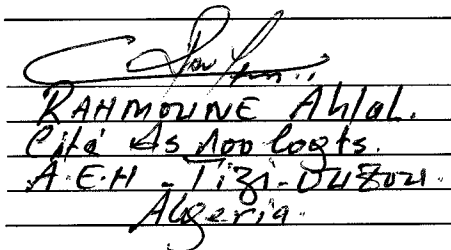 RAHMOUNE Ahlal.
Cité 100 logts.
A.E.H - Tizi-Ouzou.
Algeria.